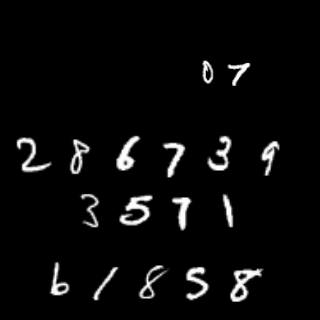 07
286739
3571
61858